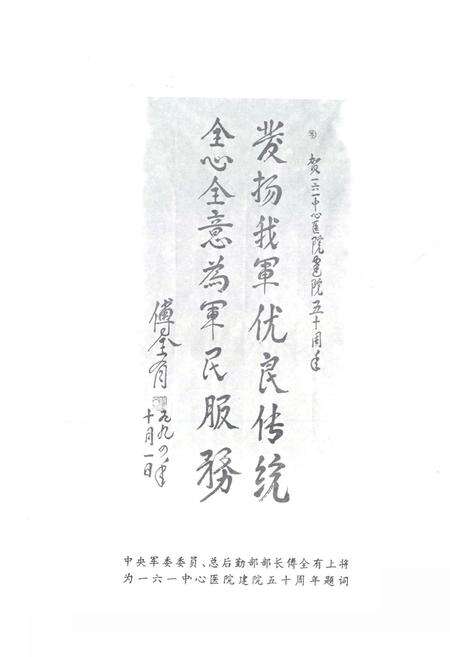 贺一六一中心医院建院五十周年
发扬我军优良传统
全心全意为军民服务
傅全有
一九九四年
十月一日
中央军委委员、总后勤部部长傅全有上将
为一六一中心医院建院五十周年题词